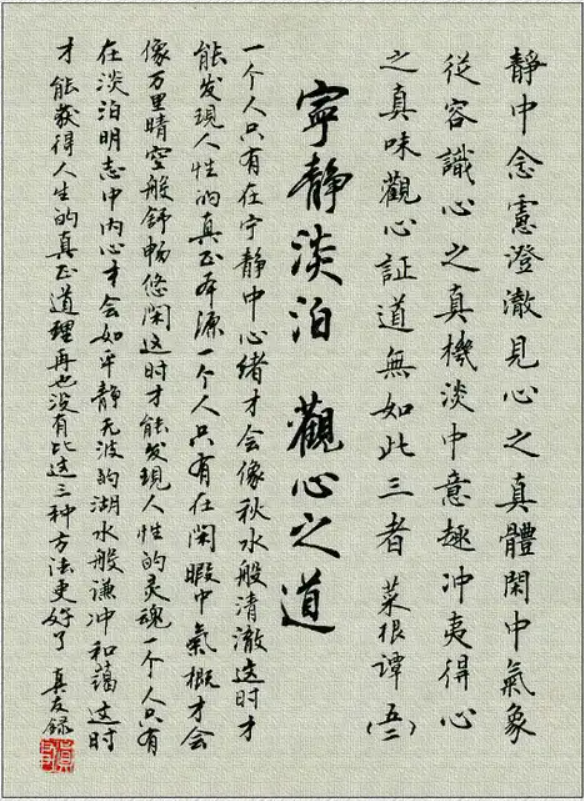 靜中念慮澄澈見心之真體閑中氣象
從容識心之真機淡中意趣冲夷得心
之真味觀心証道無如此三者 菜根谭(五二)
寧靜淡泊 觀心之道
一个人只有在宁静中心绪才会像秋水般清澈这时才
能发現人性的真正本源一个人只有在闲暇中氣概才会
像万里晴空般舒畅悠闲这时才能发現人性的灵魂一个人只有
在淡泊明志中内心才会如平静无波的湖水般谦冲和蔼这时
才能获得人生的真正道理再也没有比这三种方法更好了 真友録